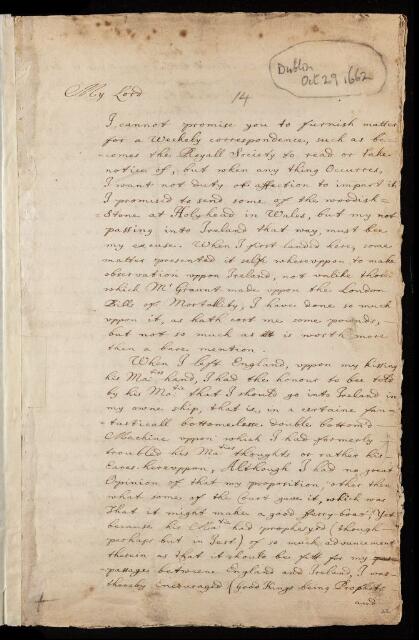 Dublin
Oct 29 1662
My Lord
14
I cannot promise you to furnish matter
for a Weekely correspondence, such as be=
comes the Royall Society to read or take
notice of, but when any thing Occurres,
I want not duty or affection to impart it
I promised to send some of the woodish=
=Stone at Holyhead in Wales, but my not
passing into Ireland that way, must bee
my excuse. When I first landed here, some
matter presented it self whereuppon to make
observation uppon Ireland, not unlike those
which Mr Graunt made uppon the London
Bills of Mortallity, I have done so much
uppon it, as hath cost me some pounds,
but not so much as it is worth more
then a bare mention.
When I left England, uppon my kissing
his Maties hand, I had the honour to bee told
by his Matie that I should go into Ireland in
my owne ship, that is, in a certaine fan=
tasticall bottomelesse double bottom'd
Machine uppon which I had formerly
troubled his Maties thoughts or rather his
Eares hereuppon, Although I had no great
Opinion of that my proposition, other then
what some of the Court gave it, which was
That it might make a good ferry boat; Yet
because his Matie had prophesyed (though
perhaps but in Jest) of so much advancement
therein as that it should be fitt for my
passages betweene England and Ireland, I was
thereby encouraged (Good Kings being Prophets
and